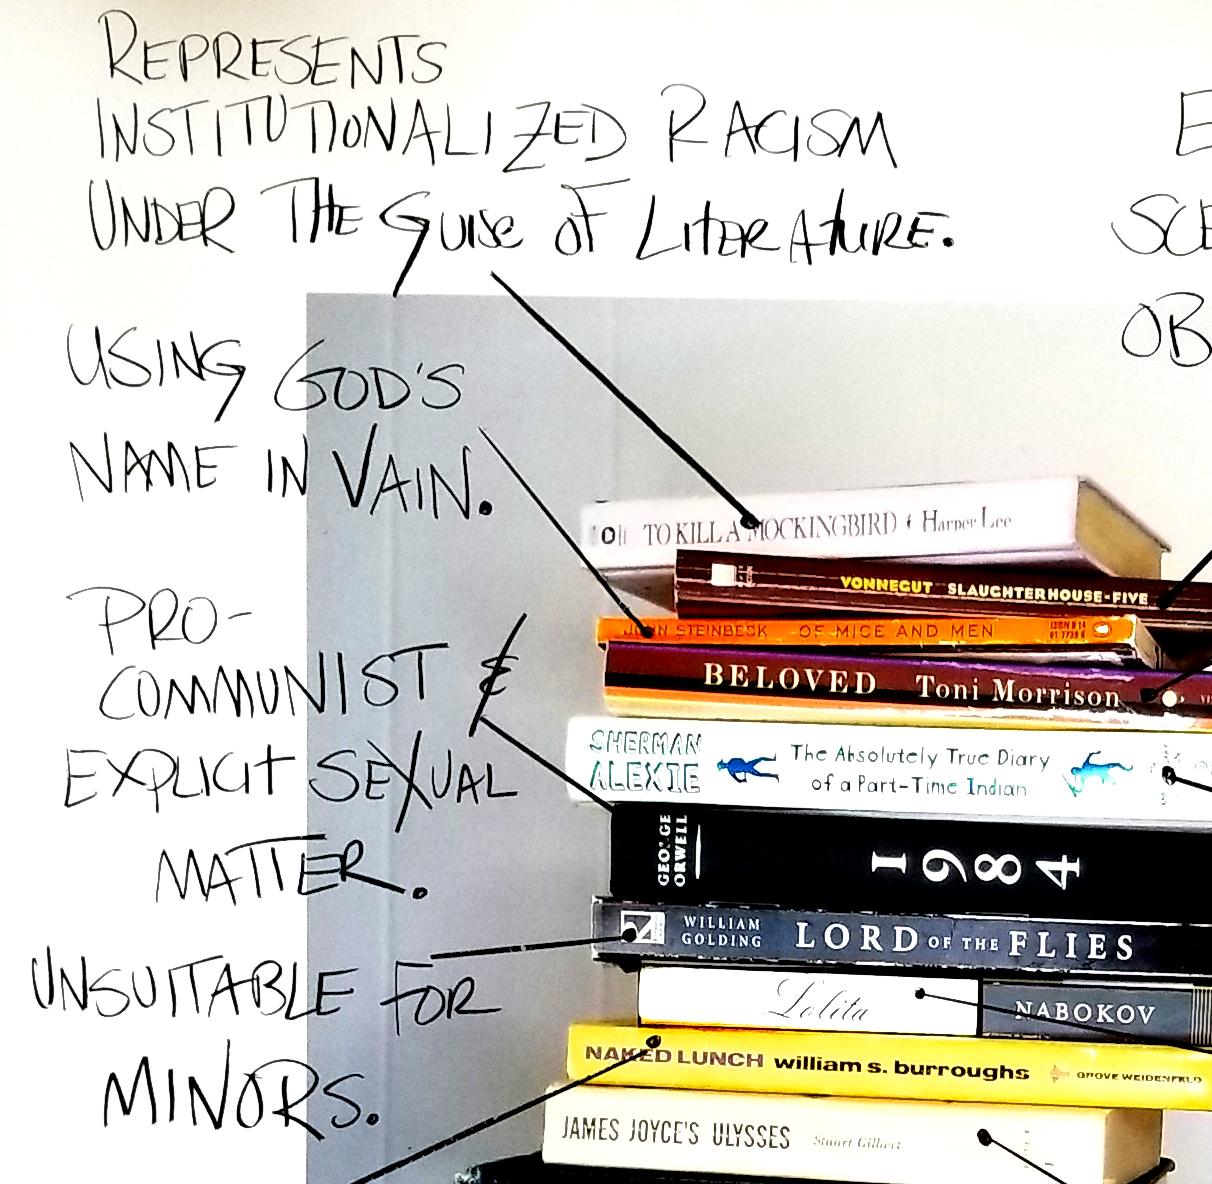 REPRESENTS
INSTITUTIONALIZED RACISM
UNDER THE GUISE OF LITERATURE.
USING GOD'S
NAME IN VAIN.
PRO-
COMMUNIST &
EXPLICIT SEXUAL
MATTER.
UNSUITABLE FOR
MINORS.
E
SCE
OB
TO KILL A MOCKINGBIRD Harper Lee
VONNEGUT SLAUGHTERHOUSE-FIVE
JOHN STEINBECK OF MICE AND MEN
BELOVED Toni Morrison
SHERMAN
ALEXIE
The Absolutely True Diary
of a Part-Time Indian
GEORGE
ORWELL
1984
WILLIAM
GOLDING
LORD OF THE FLIES
Lolita NABOKOV
NAKED LUNCH william s. burroughs GROVE WEIDENFELD
JAMES JOYCE'S ULYSSES Stuart Gilbert